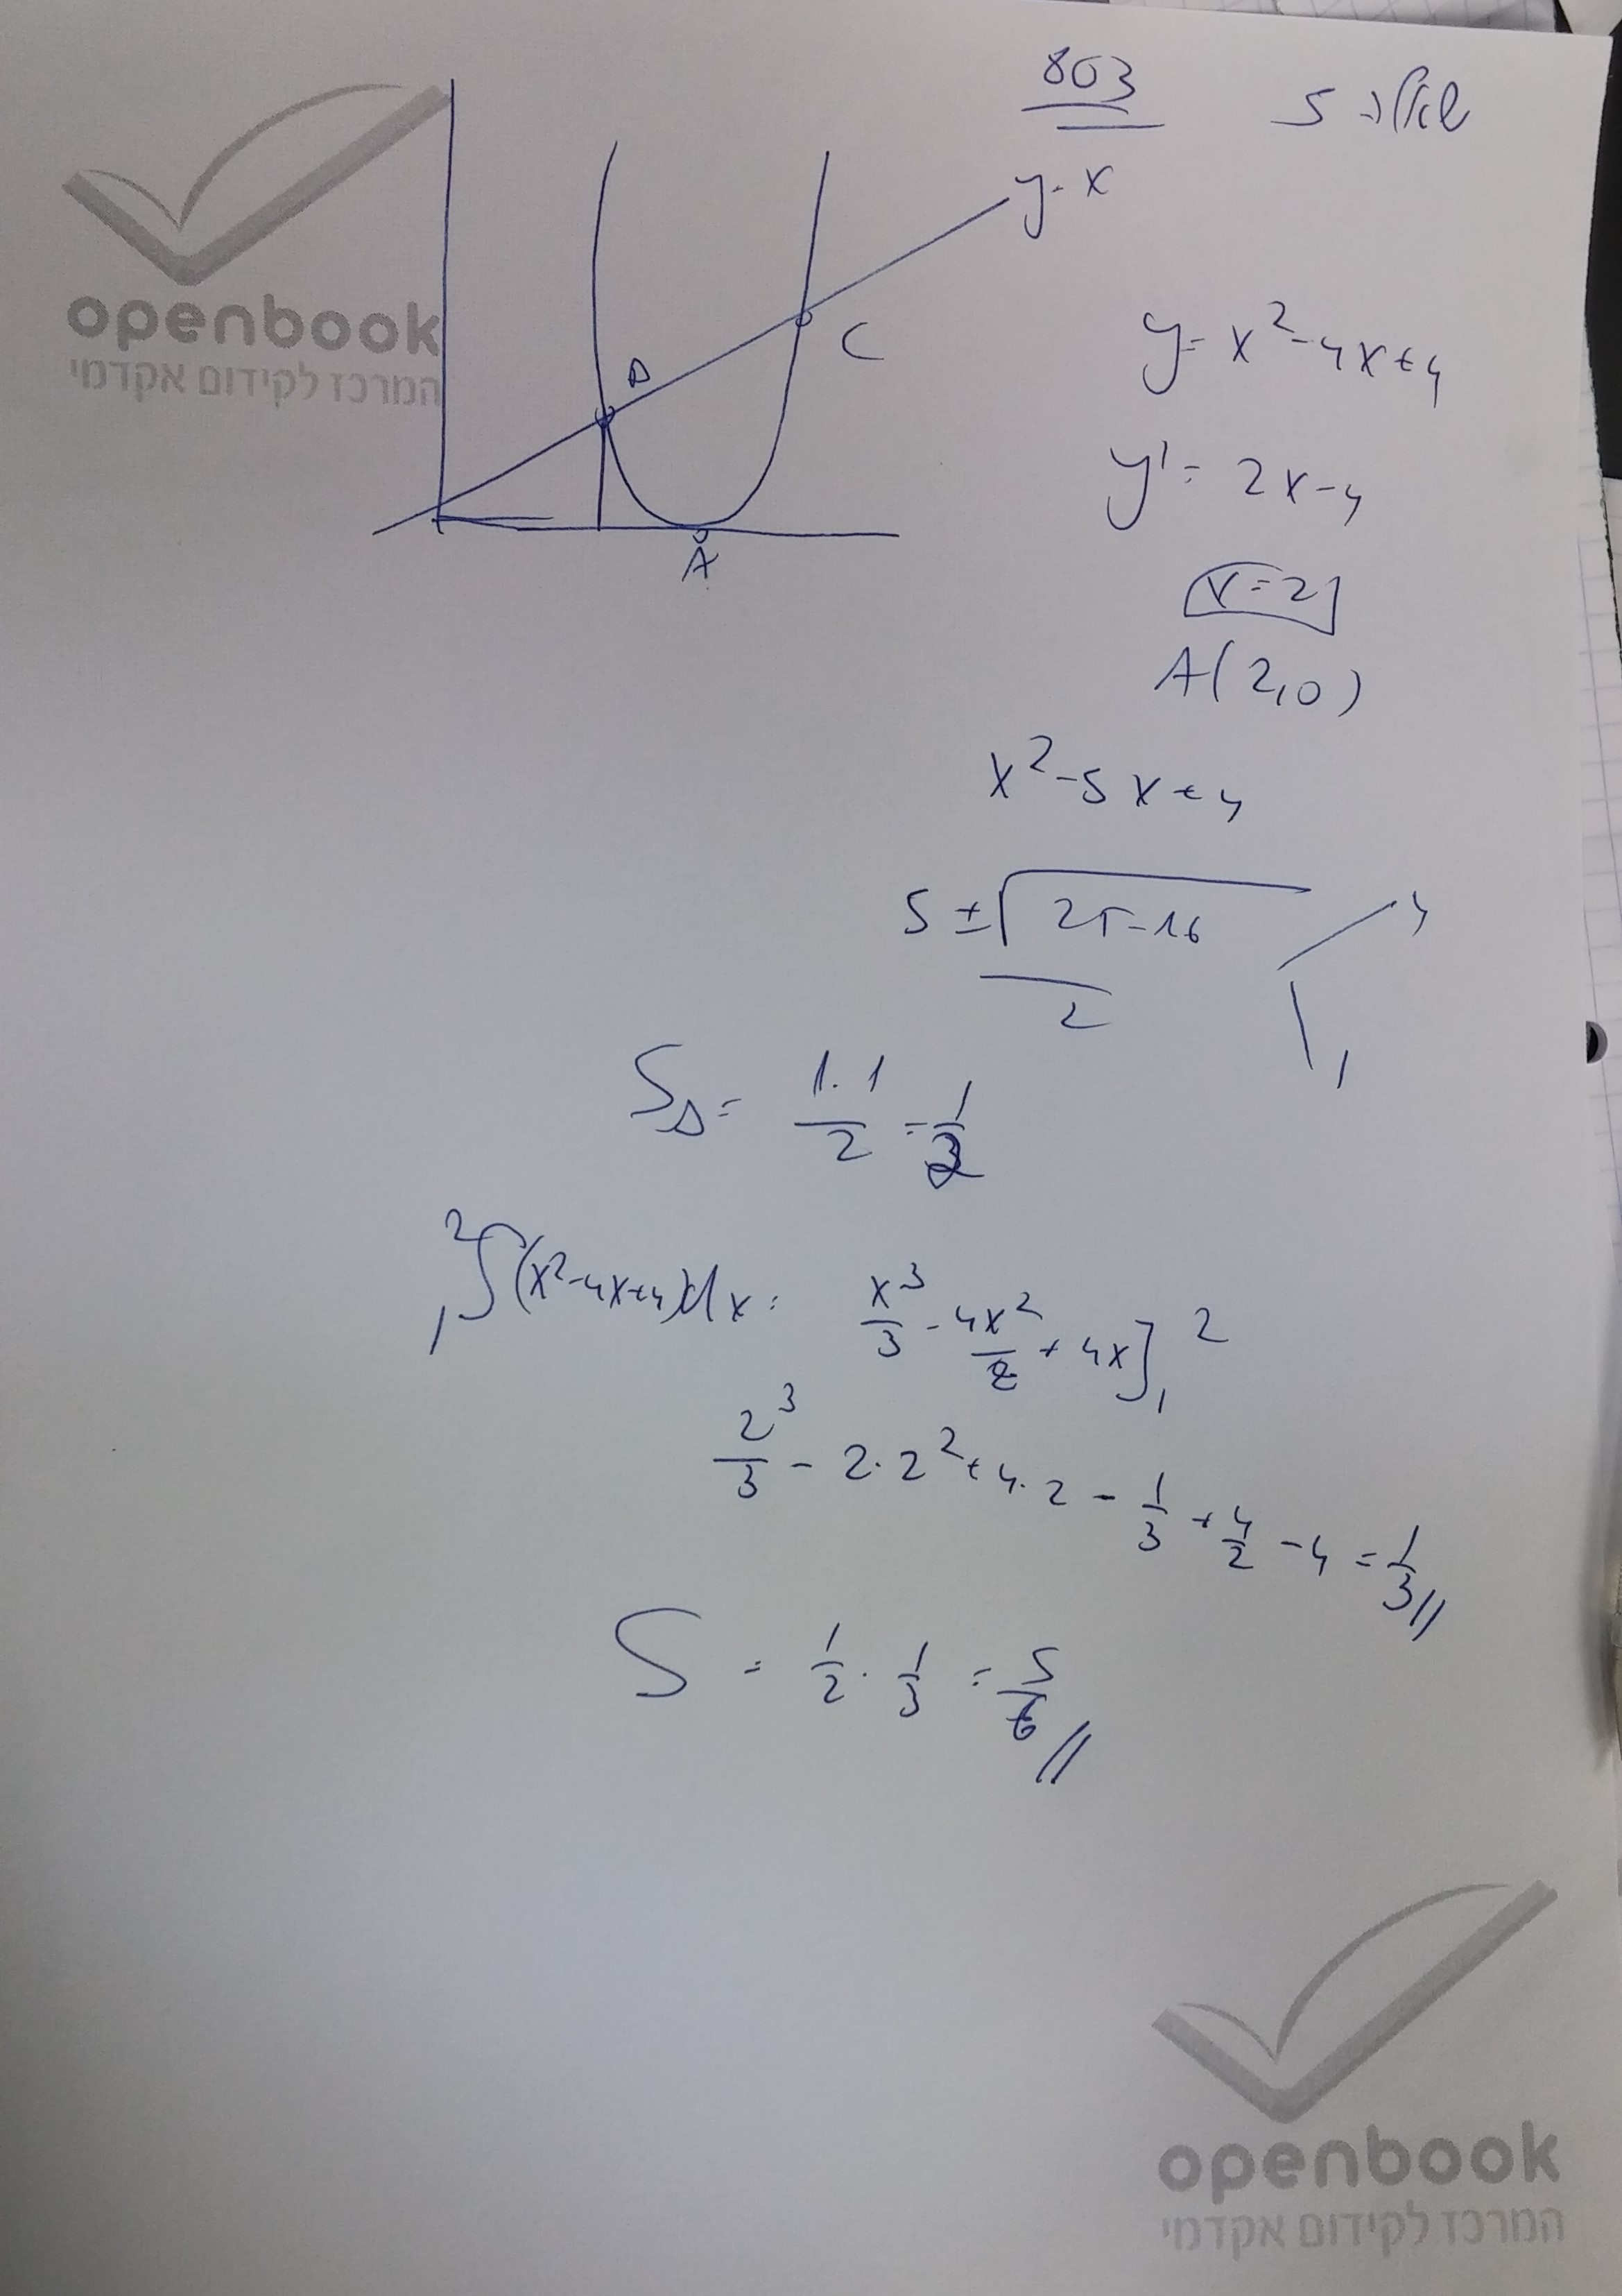 803 שאלה 5
openbook
המרכז לקידום אקדמי
y=x
B
C
A
y=x²-4x+4
y'=2x-4
x=2
A(2,0)
x²-5x+4
5±√25-16
2
4
1
S△= 1·1/2 = 1/2
₁∫²(x²-4x+4)dx= x³/3 - 4x²/2 + 4x]₁²
2³/3 - 2·2²+4·2 - 1/3 + 4/2 - 4 = 1/3//
S = 1/2 · 1/3 = 5/6//
openbook
המרכז לקידום אקדמי